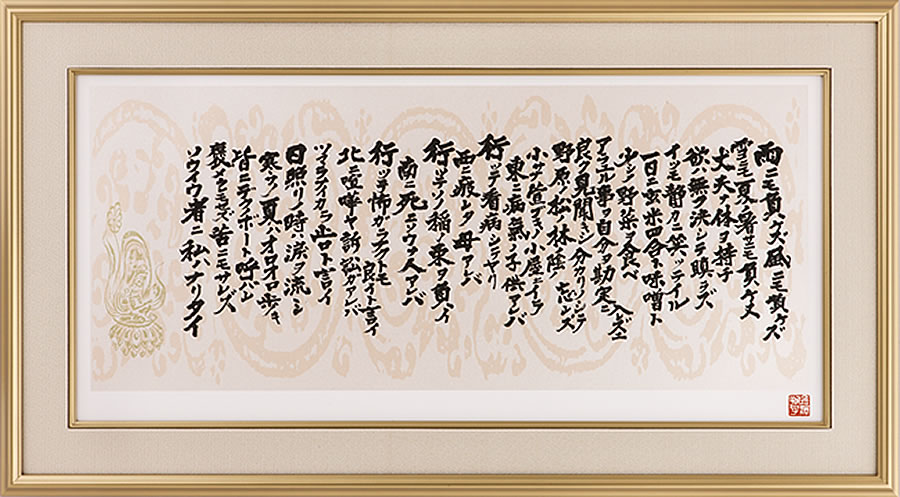 雨ニモ負ケズ風ニモ負ケズ
雪ニモ夏ノ暑サニモ負ケヌ
丈夫ナ体ヲ持チ
欲ハ無ク決シテ瞋ラズ
イツモ静カニ笑ッテイル
一日ニ玄米四合ト味噌ト
少シノ野菜ヲ食ベ
アラユル事ヲ自分ヲ勘定ニ入レズニ
良ク見聞キシ分カリソシテ忘レズ
野原ノ松ノ林ノ陰ノ
小サナ萱ブキノ小屋ニイテ
東ニ病気ノ子供アレバ
行ッテ看病シテヤリ
西ニ疲レタ母アレバ
行ッテソノ稲ノ束ヲ負イ
南ニ死ニソウナ人アレバ
行ッテ怖ガラナクトモ良イト言イ
北ニ喧嘩ヤ訴訟ガアレバ
ツマラナイカラ止ロト言イ
日照リノ時ハ涙ヲ流シ
寒サノ夏ハオロオロ歩キ
皆ニデクノボート呼バレ
褒メラレモセズ苦ニモサレズ
ソウイウ者ニ私ハナリタイ